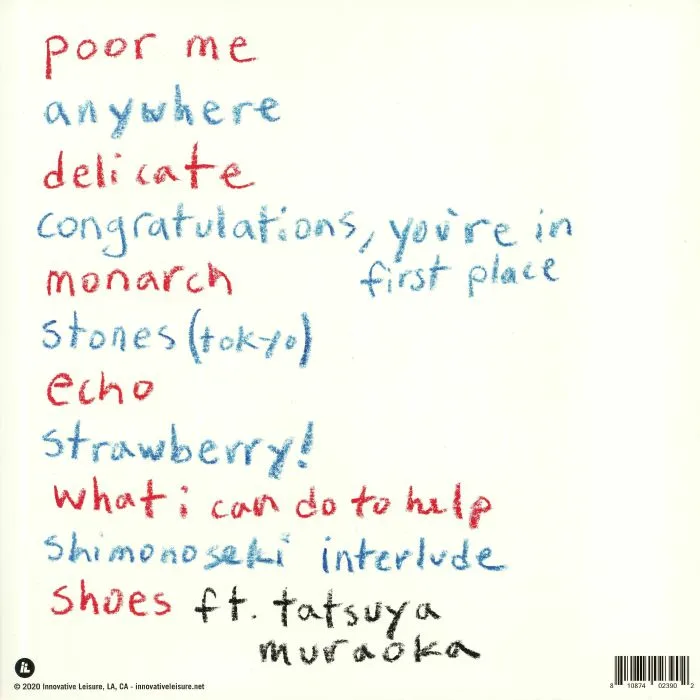 poor me
anywhere
delicate
congratulations, you're in
first place
monarch
stones (tokyo)
echo
strawberry!
what i can do to help
shimonoseki interlude
shoes ft. tatsuya
muraoka
il.
© 2020 Innovative Leisure, LA, CA - innovativeleisure.net
8 10874 02390 2